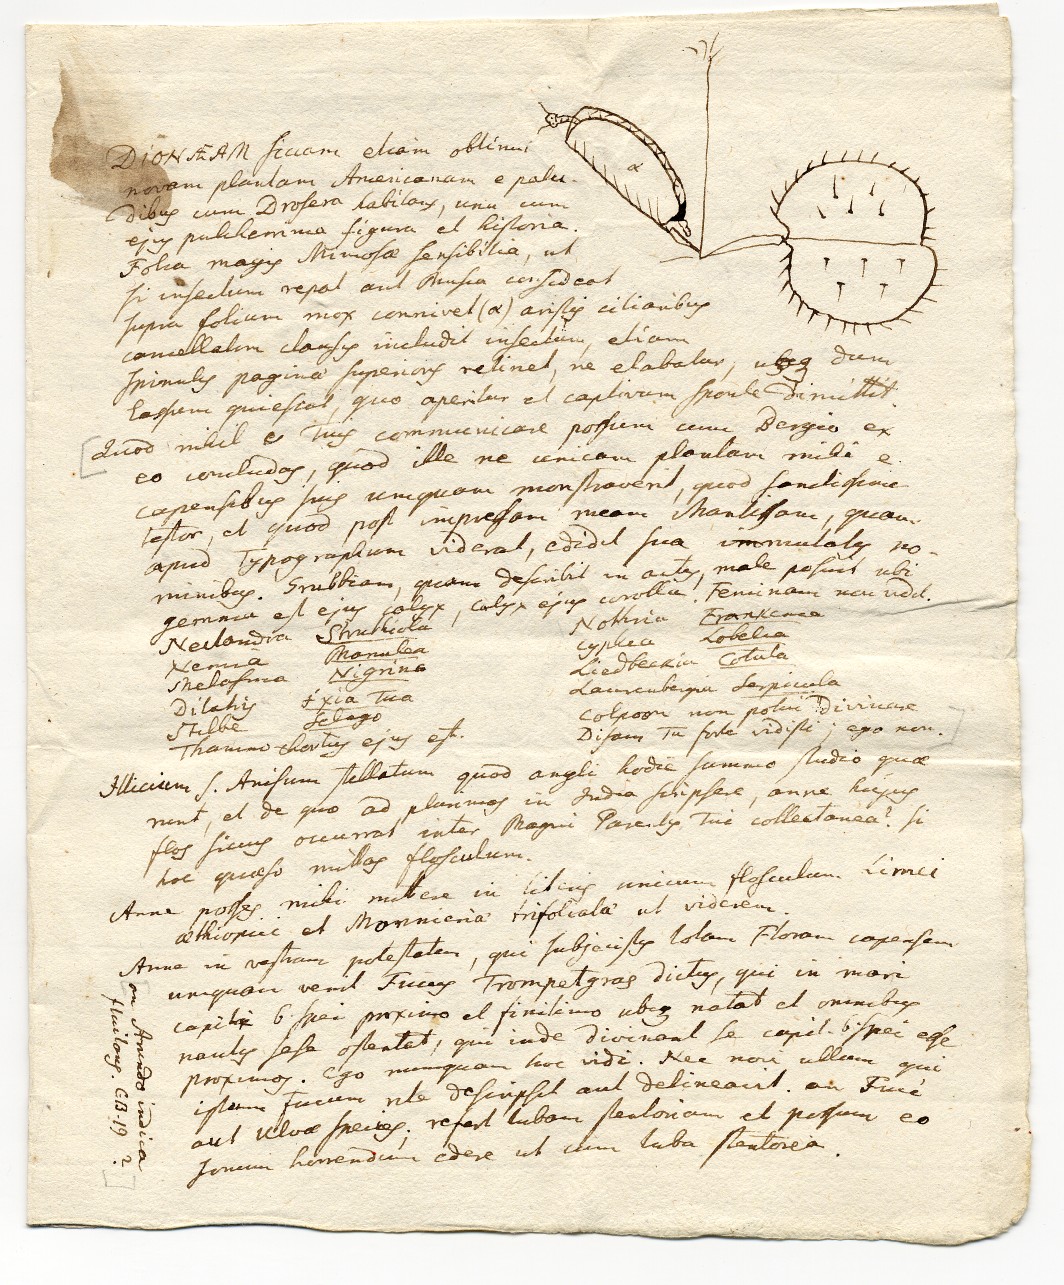 DIONÆAM siccam etiam obtinui
novam plantam Americanam e palu-
dibus cum Drosera habitans, una cum
ejus pulcherrima figura et historia.
Folia magis Mimosæ sensibilia, ut
si insectum repat aut Musca consideat
supra folium mox connivet (α) aristis ciliaribus
cancellatim clausis includit insectum, etiam
spinulis paginæ superioris retinet, ne elabatur, usq dum
lassum quiescat, quo aperitur et captivum sponte dimittit.
Quod nihil e Tuis communicare possum cum Bergio ex
eo concludas, quod ille ne unicam plantam mihi e
capensibus suis unquam monstraverit, quod sanctissime
testor, et quod post impressam meam Mantissam, quam
apud Typographum viderat, edidit sua immutatis no-
minibus. Grubbiam, quam describit in actis, male posuit ubi
gemma est ejus calyx, calyx ejus corolla. Feminam non vidit.
Nectandra Struthiola
Nemia Manulea
Melasma Nigrina
Dilatris Ixia Tua
Stilbe Selago
Thamnochortus ejus est.
Nothria Frankenia
Cyphia Lobelia
Liedbeckia Cotula
Laurenbergia Serpicula
Colpoon non potui divinare
Disam Tu forte vidisti; ego non.
Illicium s. Anisum stellatum quod angli hodie summo studio quæ
runt, et de quo ad plurimos in India scripsere, anne hujus
flos siccus occurrat inter Magni Parentis Tui collectanea? si
hoc quæso mittas flosculum.
Anne posses mihi mittere in literis unicum flosculum Limei
æthiopici et Monnieriæ trifoliatæ ut viderem.
Anne in vestram potestatem, qui subjecistis totam Floram capensem
unquam venit Fucus Trompetgras dictus, qui in mari
capiti b. spei proximo et finitimo ubiq natat et omnibus
nautis sese ostentat, qui inde divinant se capit. b. spei esse
proximos. Ego nunquam hoc vidi. Nec novi ullum qui
istum fucum rite descripsit aut delineavit. an Fuci
aut Ulvæ species; refert tubam stentoriam et possum eo
sonum horrendum edere ut cum tuba stentorea.
an Arundo indica
fluitans. C.B. 19 ?
α